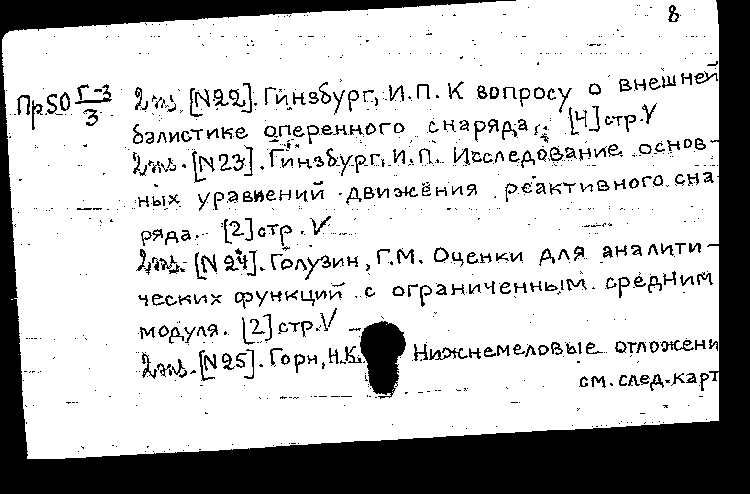 8
Пр50 Г-3/3 2экз. [N22]. Гинзбург, И.П. К вопросу о внешней
балистике оперенного снаряда. [4] стр. V
2экз. [N23]. Гинзбург, И.П. Исследование основ-
ных уравнений движения реактивного сна
ряда. [2] стр. V
2экз. [N24]. Голузин, Г.М. Оценки для аналити-
ческих функций с ограниченным средним
модуля. [2] стр. V
2экз. [N25]. Горн, Н.К. Нижнемеловые отложени
см. след. карт